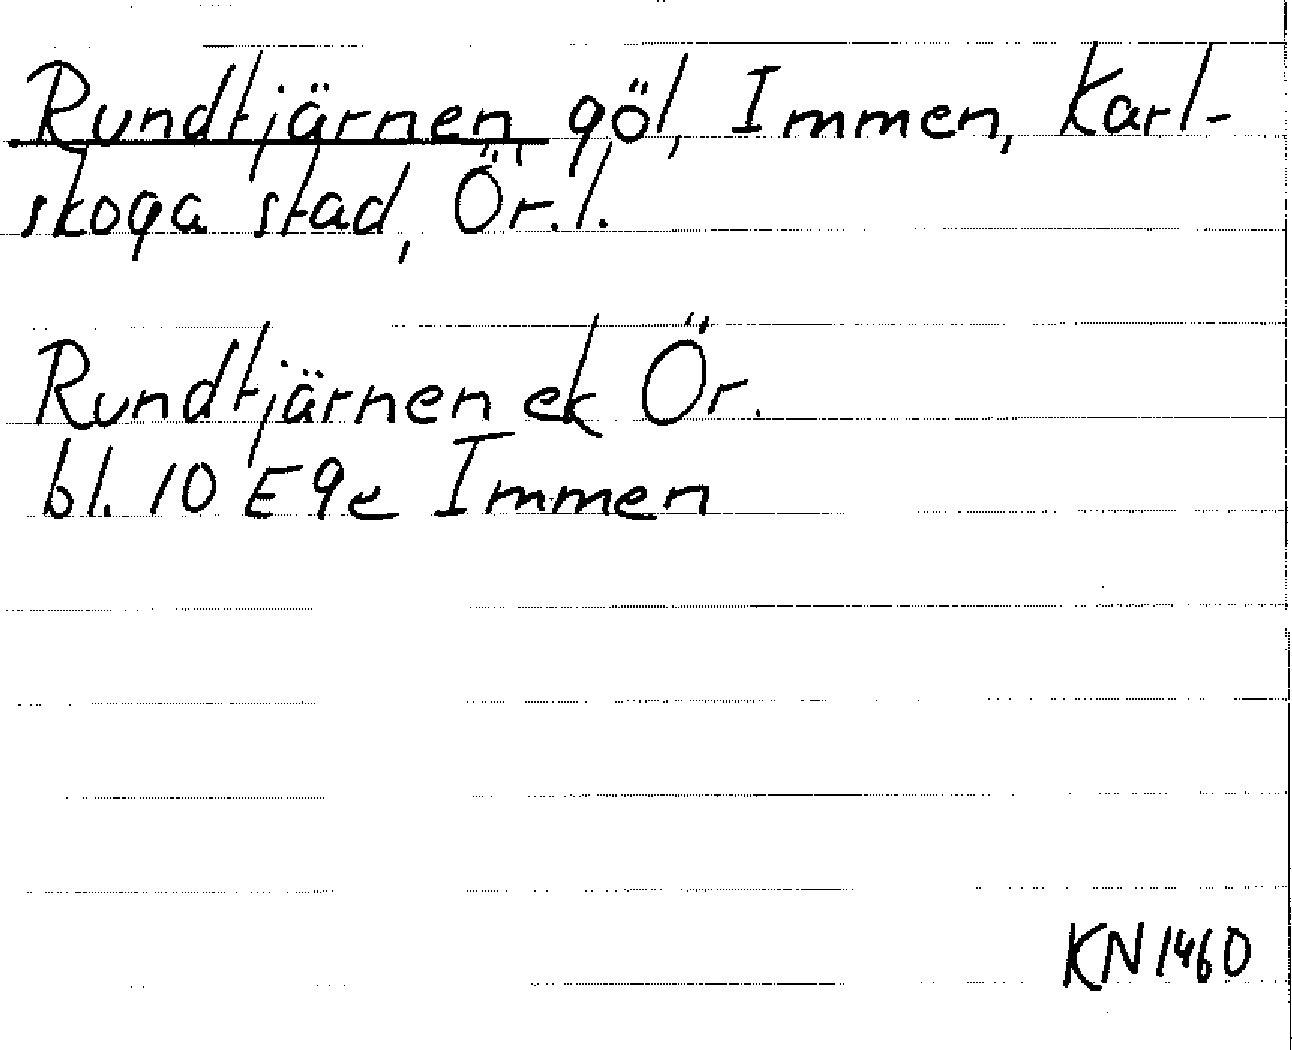 Rundtjärnen göl, Immen, Karl-
skoga stad, Ör.l.
Rundtjärnen ek Ör.
bl. 10 E 9e Immen
KN 1460